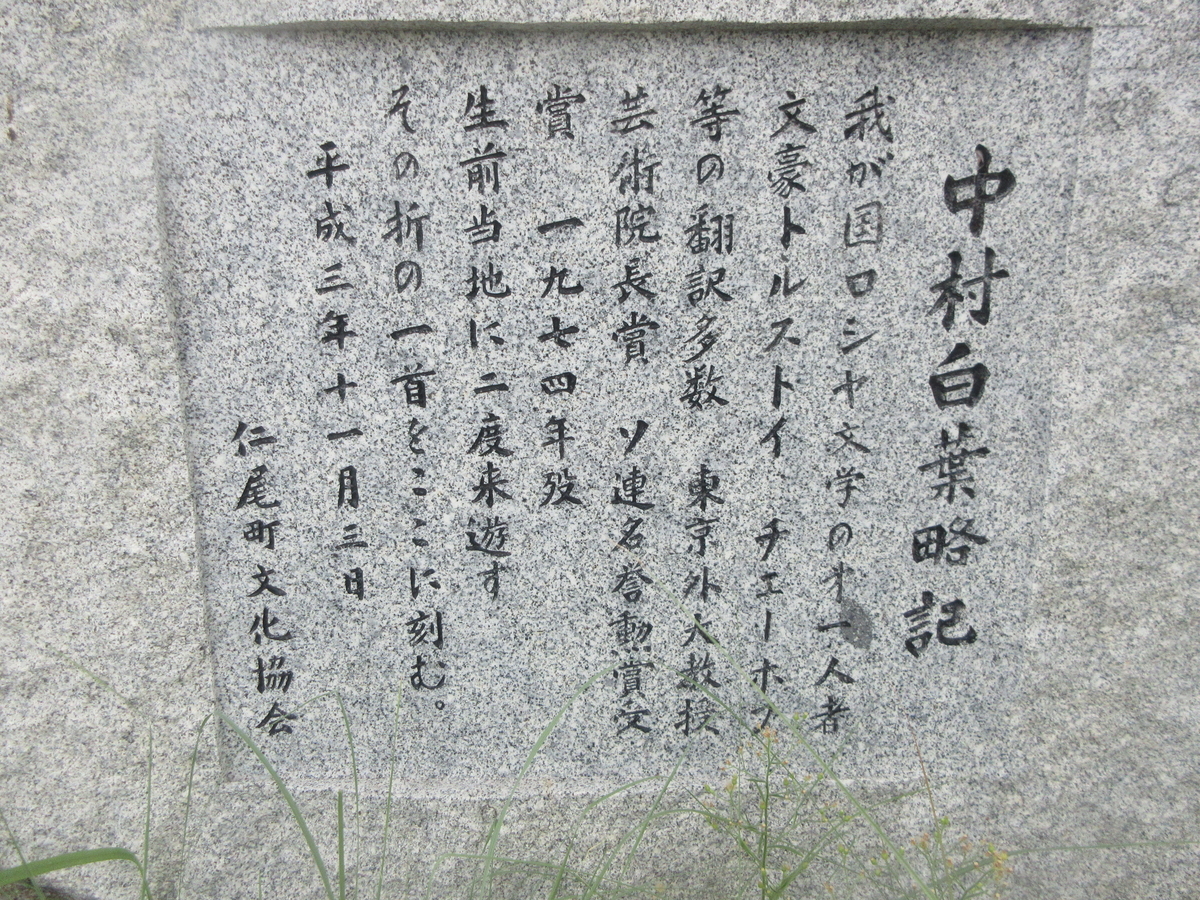 中村白葉略記
我が国ロシヤ文学のオ一人者
文豪トルストイ、チエーホフ
等の翻訳多数 東京外大教授
芸術院長賞 ソ連名誉勲賞文
賞 一九七四年歿
生前当地に二度来遊す
その折の一首をここに刻む。
平成三年十一月三日
仁尾町文化協会